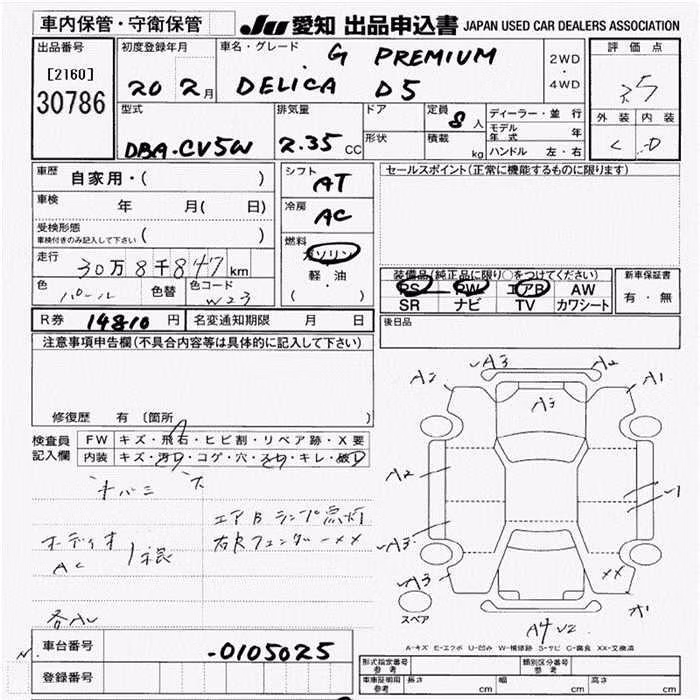 車内保管・守衛保管
JU 愛知 出品申込書 JAPAN USED CAR DEALERS ASSOCIATION
出品番号
[2160]
30786
初度登録年月
20 2月
車名・グレード
G PREMIUM
DELICA D5
2WD
・
4WD
評価点
3.5
外装 内装
C D
型式
DBA-CV5W
排気量
2.35 CC
ドア
形状
定員 8人
積載 kg
ディーラー・並行
モデル年式 年
ハンドル 左・右
車歴 自家用・( )
車検 年 月( 日)
受検形態
車検付きのみ記入して下さい ( )
走行 30万8千847km
色 パール 色替 色コード W23
シフト
AT
冷房
AC
燃料
ガソリン
軽・油
( ・ )
セールスポイント(正常に機能するものに限ります)
装備品(純正品に限り○をつけてください)
PS PW エアB AW
SR ナビ TV カワシート
新車保証書
有・無
後日品
R券 14810円 名変通知期限 月 日
注意事項申告欄(不具合内容等は具体的に記入して下さい)
修復歴 有 〔箇所 〕
検査員記入欄
FW キズ・飛石・ヒビ割・リペア跡・X要
内装 キズ・汚れ・コゲ・穴・スレ・キレ・破れ
エアBランプ点灯
右Rフェンダー XX
オーディオ
AC
A3
A2
A2
A3
A1
A2
A3
A3
XX
A4 U2
スペア
A-キズ E-エクボ U-凹み W-補修跡 S-サビ C-腐食 XX-交換済
車台番号 -0105025
登録番号
型式指定番号 参考
類別区分番号 参考
車庫証明用 参考 長さ cm 幅 cm 高さ cm